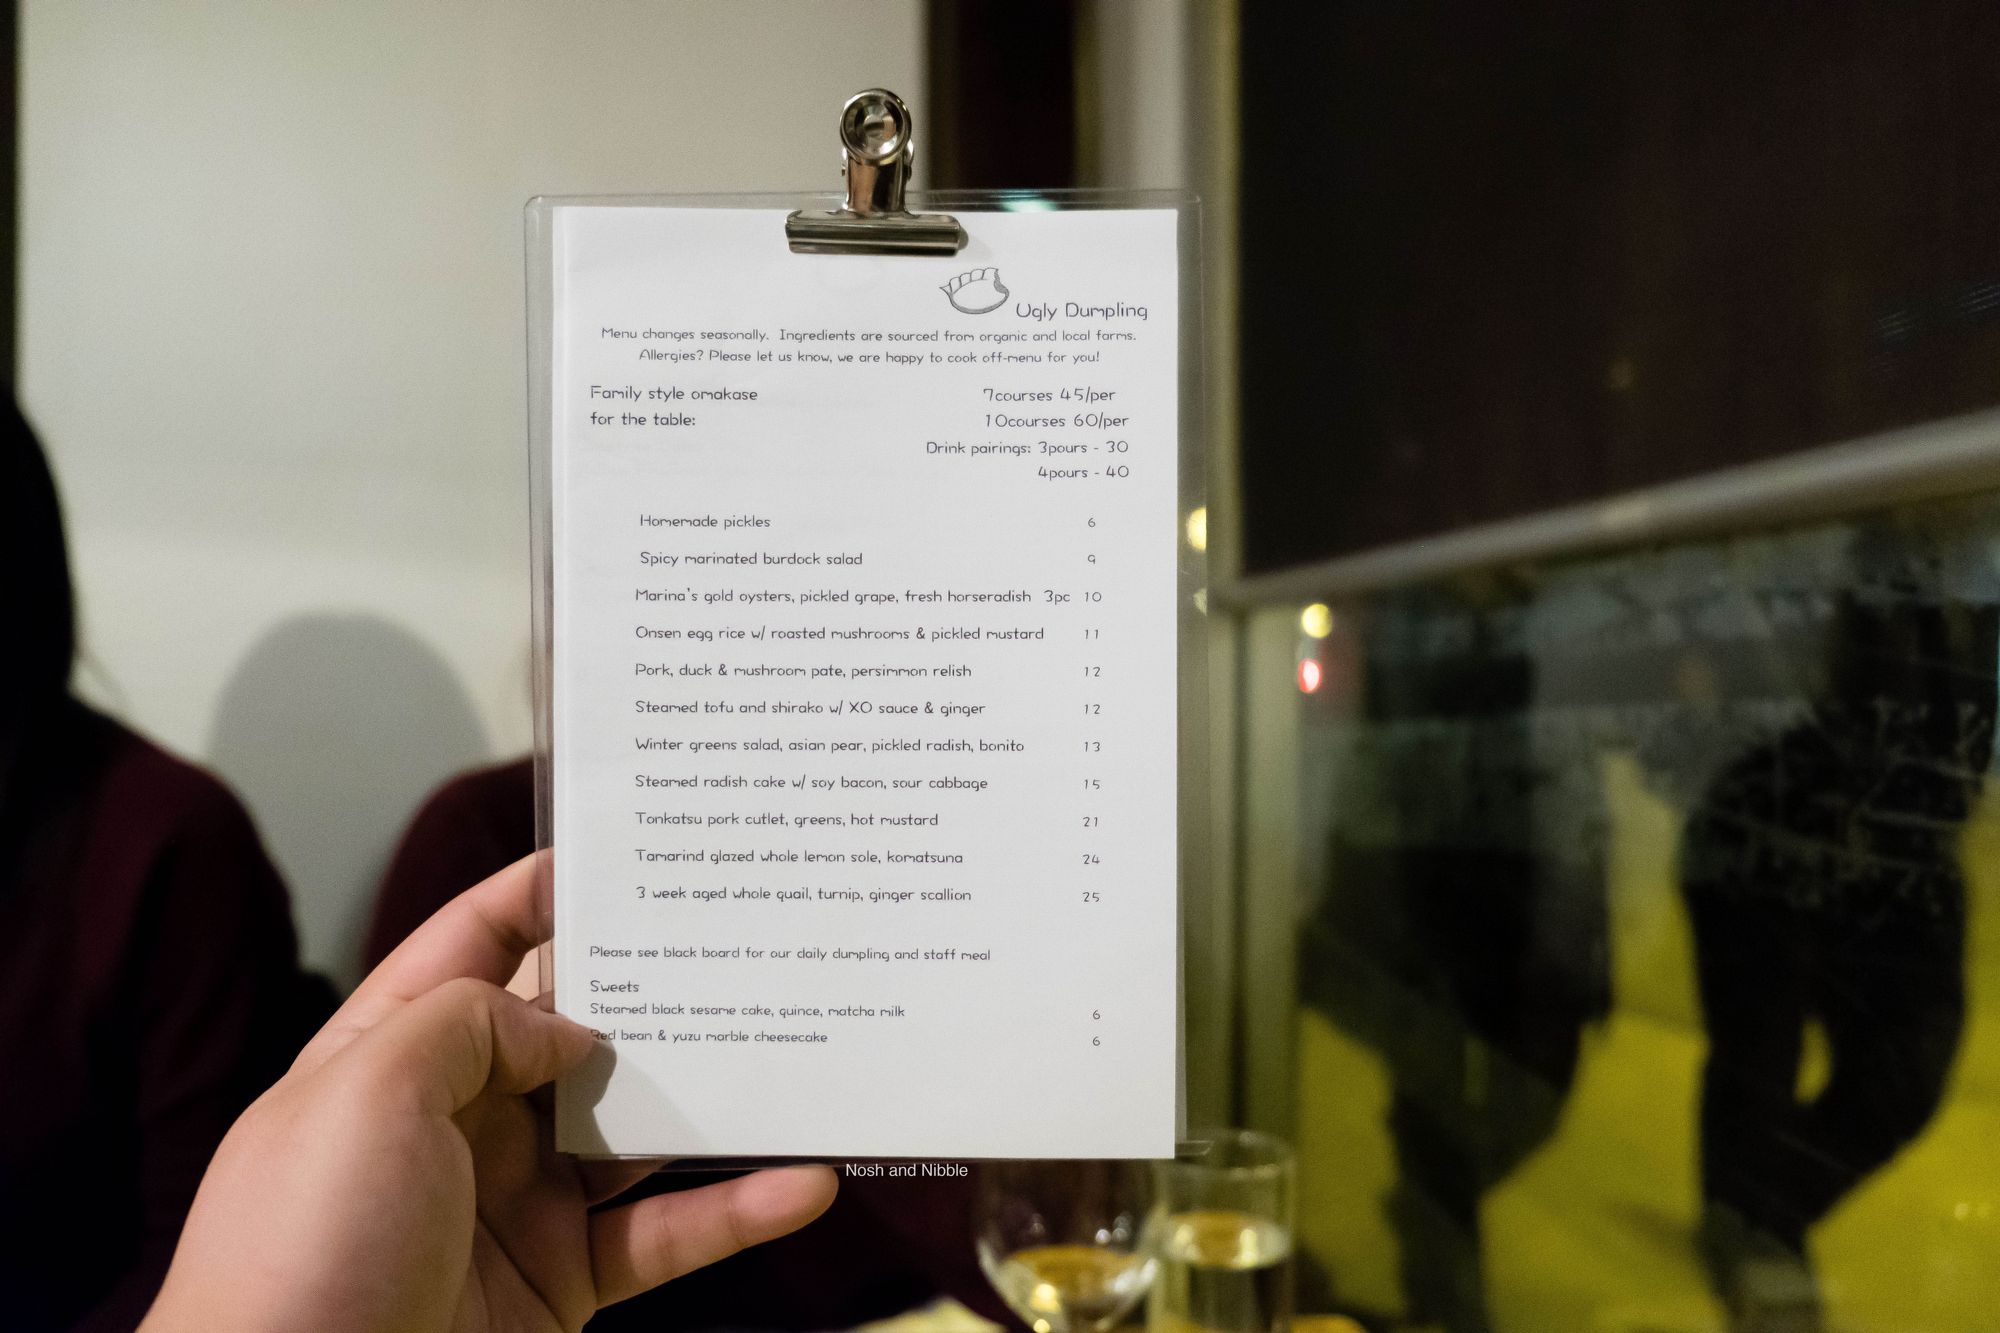 Ugly Dumpling
Menu changes seasonally. Ingredients are sourced from organic and local farms.
Allergies? Please let us know, we are happy to cook off-menu for you!
Family style omakase 7courses 45/per
for the table: 10courses 60/per
Drink pairings: 3pours - 30
4pours - 40
Homemade pickles 6
Spicy marinated burdock salad 9
Marina's gold oysters, pickled grape, fresh horseradish 3pc 10
Onsen egg rice w/ roasted mushrooms & pickled mustard 11
Pork, duck & mushroom pate, persimmon relish 12
Steamed tofu and shirako w/ XO sauce & ginger 12
Winter greens salad, asian pear, pickled radish, bonito 13
Steamed radish cake w/ soy bacon, sour cabbage 15
Tonkatsu pork cutlet, greens, hot mustard 21
Tamarind glazed whole lemon sole, komatsuna 24
3 week aged whole quail, turnip, ginger scallion 25
Please see black board for our daily dumpling and staff meal
Sweets
Steamed black sesame cake, quince, matcha milk 6
Red bean & yuzu marble cheesecake 6
Nosh and Nibble